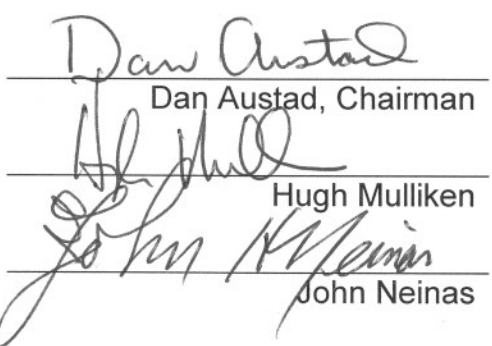 Dan Austad
Dan Austad, Chairman
Hugh Mulliken
John H Neinas
John Neinas